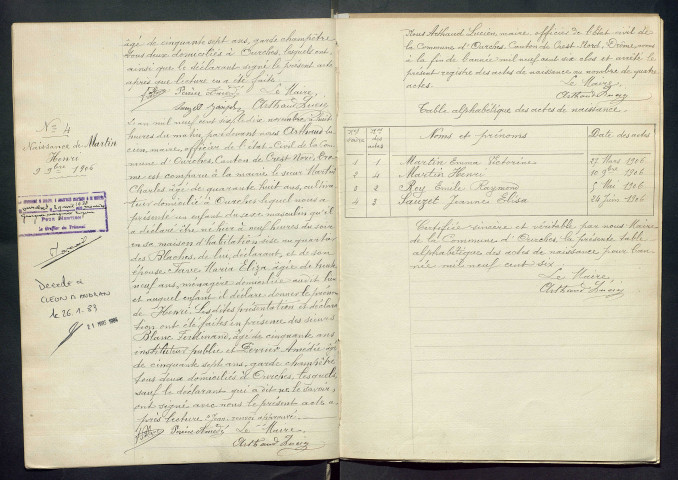 âgé de cinquante sept ans, garde champêtre
tous deux domiciliés à Ourches, lesquels ont
ainsi que le déclarant signé le présent acte
après que lecture en a été faite
Le Maire
Arthaud Lucien
N° 4
Naissance de Martin
Henri
9 9bre 1906
Le Greffier du Tribunal
Décédé à
CLEON D'ANDRAN
le 26.1.83
L'an mil neuf cent six le dix novembre à huit
heures du matin, pardevant nous Arthaud Lu-
cien, maire, officier de l'Etat-Civil de la Com-
mune d'Ourches, Canton de Crest Nord, Drô-
me est comparu à la mairie le sieur Martin
Charles âgé de quarante huit ans, cultiva-
teur domicilié à Ourches lequel nous a
présenté un enfant du sexe masculin qu'il
a déclaré être né hier à neuf heures du soir
en sa maison d'habitation sise au quartier
des Blaches, de lui, déclarant, et de son
épouse Faure Maria Eliza, âgée de trente
neuf ans, ménagère domiciliée audit lieu
et auquel enfant il déclare donner le prénom
de Henri. Les dites présentation et déclara-
tion ont été faites en présence des sieurs
Blanc Ferdinand, âgé de cinquante ans
instituteur public et Perrier Amédée âgé
de cinquante sept ans, garde champêtre
tous deux domiciliés à Ourches, lesquels
sauf le déclarant qui a dit ne le savoir,
ont signé avec nous le présent acte a-
près lecture
Le Maire
Arthaud Lucien
Nous Arthaud Lucien, maire, officier de l'état civil de
la Commune d'Ourches, Canton de Crest-Nord, Drôme, vu
à la fin de l'année mil neuf cent six clos et arrêté le
présent registre des actes de naissance au nombre de quatre
actes.
Le Maire,
Arthaud Lucien
Table alphabétique des actes de naissance.
Nos d'ordre Nos des actes Noms et prénoms Date des actes
1 1 Martin Emma Victorine 27 Mars 1906
2 4 Martin Henri 10 9bre 1906
3 2 Rey Emile Raymond 5 Mai 1906
4 3 Sauzet Jeanne Elisa 26 Juin 1906
Certifiée sincère et véritable par nous Maire
de la Commune d'Ourches la présente table
alphabétique des actes de naissance pour l'an-
née mil neuf cent six
Le Maire,
Arthaud Lucien